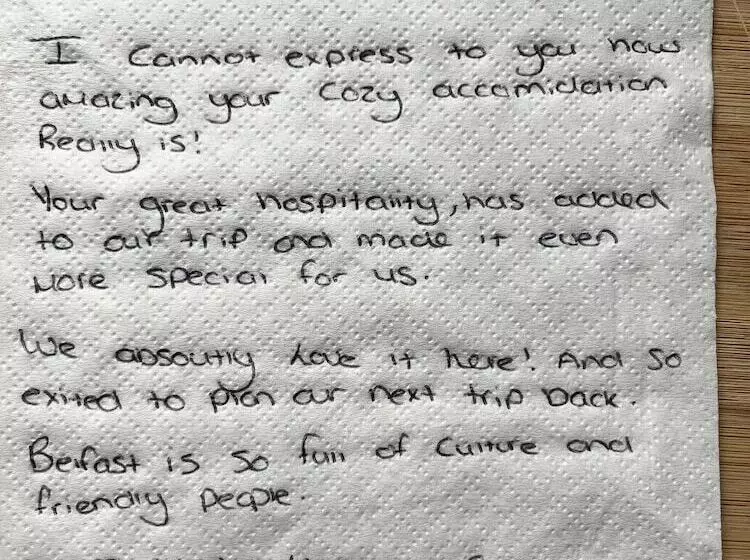 I cannot express to you how
amazing your cozy accomidation
Really is!
Your great hospitality, has added
to our trip and made it even
more special for us.
We absoutly love it here! And so
exited to plan our next trip back.
Belfast is so full of culture and
friendly people.